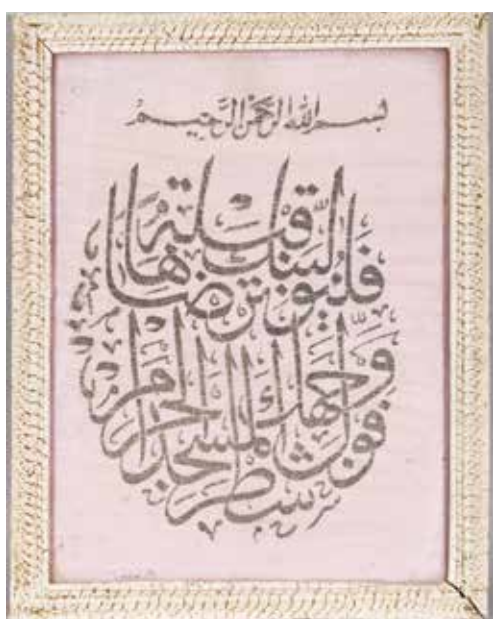 بسم الله الرحمن الرحيم
فلنولينك قبلة ترضاها
فول وجهك شطر المسجد الحرام